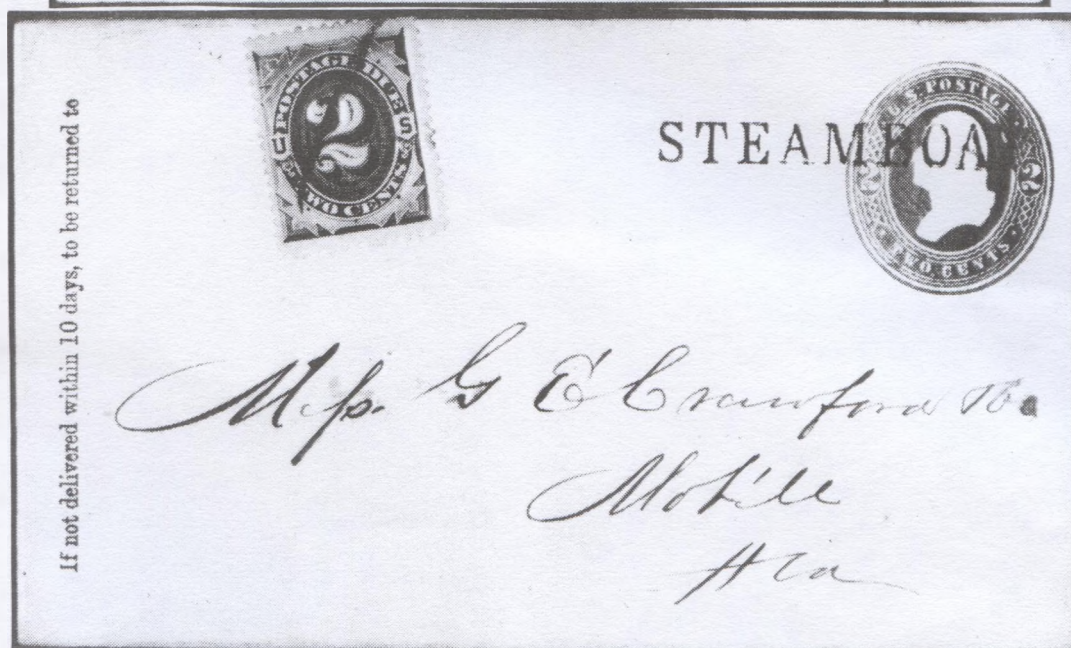 If not delivered within 10 days, to be returned to
U S POSTAGE DUE
2
TWO CENTS
STEAMBOAT
U.S. POSTAGE
2 2
TWO CENTS
G E Crawford
Mobile
Ala